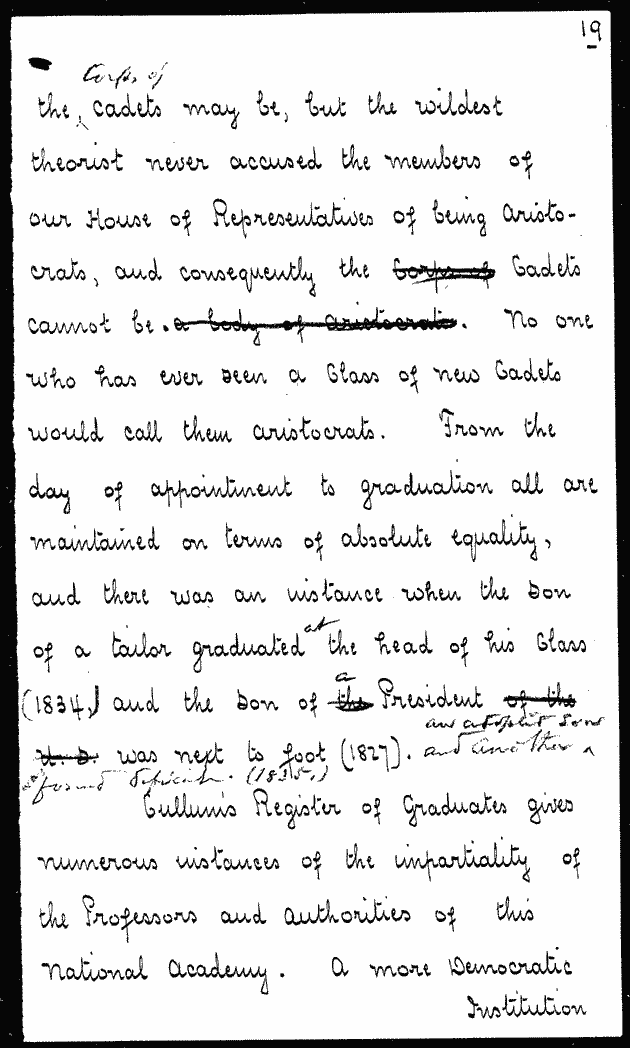 19
Corps of
the cadets may be, but the wildest
theorist never accused the members of
our House of Representatives of being Aristo-
crats, and consequently the Corps of Cadets
cannot be. a body of Aristocrats. No one
who has ever seen a Class of new Cadets
would call them aristocrats. From the
day of appointment to graduation all are
maintained on terms of absolute equality,
and there was an instance when the son
at
of a tailor graduated the head of his Class
a
(1834,) and the son of the President of the
an adopted son
U. S. was next to foot (1827). and another
found deficient. (1835.)
Cullum's Register of Graduates gives
numerous instances of the impartiality of
the Professors and authorities of this
National Academy. A more Democratic
Institution